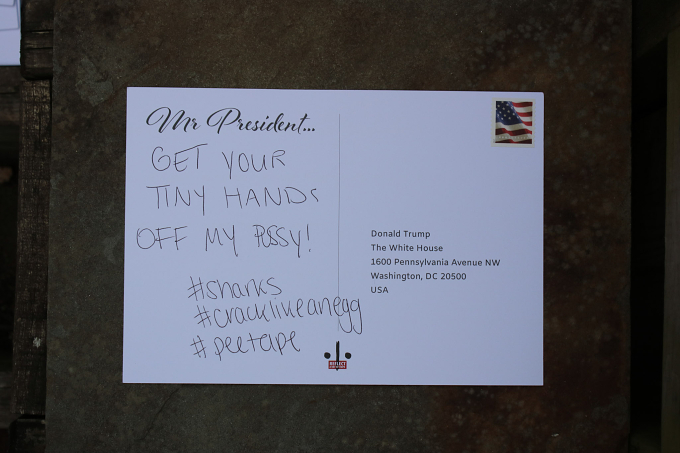 Mr President...
GET YOUR
TINY HANDS
OFF MY PUSSY!
#sharks
#cracklikeanegg
#peetape
Donald Trump
The White House
1600 Pennsylvania Avenue NW
Washington, DC 20500
USA
REFLECT